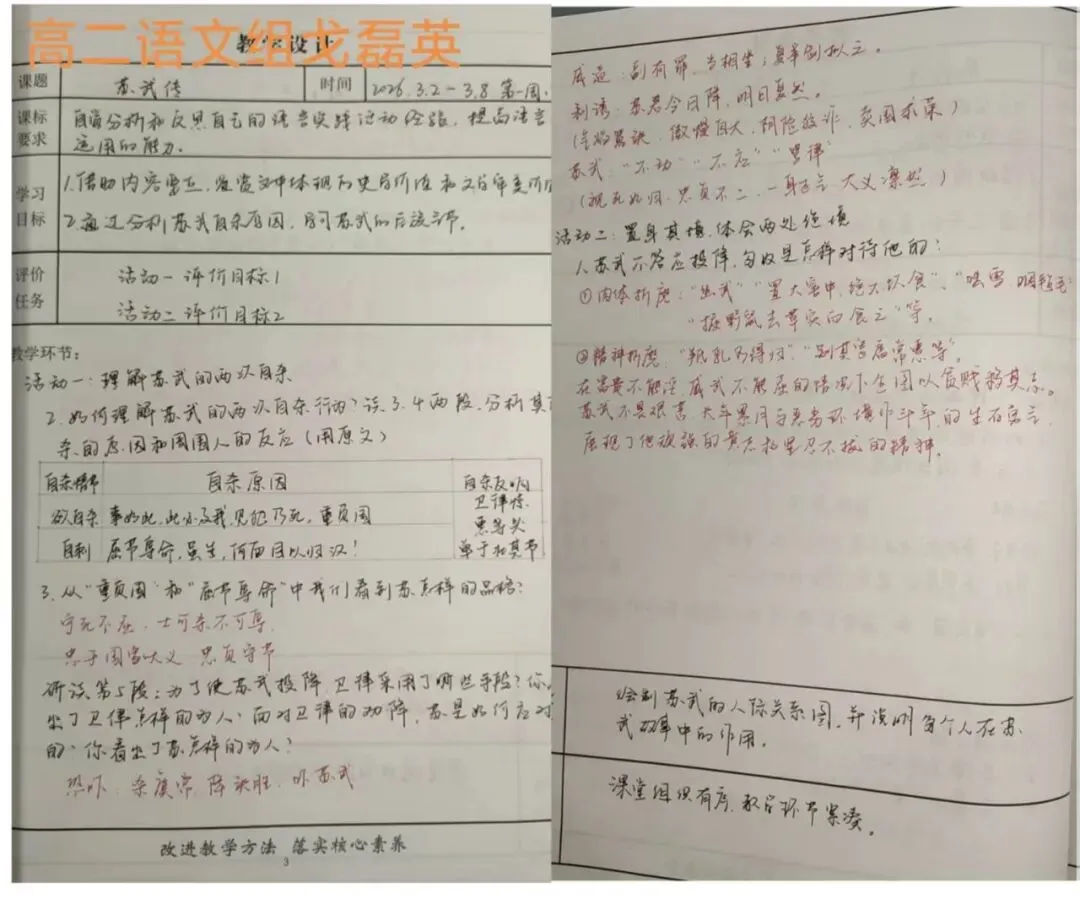 高二语文组戈磊英
教学设计
课题 苏武传 时间 2026.3.2－3.8 第一周.
课标要求 自省分析和反思自己的语言实践活动经验，提高语言
运用的能力.
学习目标 1.借助内容要点，鉴赏文中体现的史学价值和文学审美价
2.通过分析苏武自杀原因，学习苏武的气节。
评价任务 活动一 评价目标1
活动二 评价目标2
教学环节：
活动一：理解苏武的两次自杀
2.如何理解苏武的两次自杀行为？读3.4两段，分析其
杀的原因和周围人的反应（用原文）
自杀情节 自杀原因 自杀反响
欲自杀 事如此，此必及我，见犯乃死，重负国
自刺 屈节辱命，虽生，何面目以归汉！
卫律惊
惠等哭
单于壮其节
3.从“重负国”和“屈节辱命”中我们看到苏怎样的品格？
宁死不屈，士可杀不可辱，
忠于国家大义 忠贞守节
研读第5段：为了使苏武投降，卫律采用了哪些手段？你
出了卫律怎样的为人？面对卫律的劝降，苏是如何应对
的？你看出了苏怎样的为人？
恐吓：杀虞常，降张胜，吓苏武
改进教学方法 落实核心素养
3
威逼：副有罪，当相坐；复举剑拟之。
利诱：苏君今日降，明日复然。
苏武：“不动”“不应”“骂律”
活动二：置身其境，体会两处绝境
1.苏武不答应投降，匈奴是怎样对待他的？
①肉体折磨：“幽武”“置大窖中，绝不饮食”、“啮雪，咽毡毛”
“掘野鼠去草实而食之”等。
②精神折磨，“羝乳乃得归”，“别其官属常惠等”。
在富贵不能淫，威武不能屈的情况下企图以贫贱移其志。
苏武不畏艰苦，长年累月与恶劣环境作斗争
展现了他顽强的意志和坚忍不拔的精神。
绘制苏武的人际关系图，并说明每个人在苏
武故事中的作用。
课堂组织有序，教学环节紧凑。